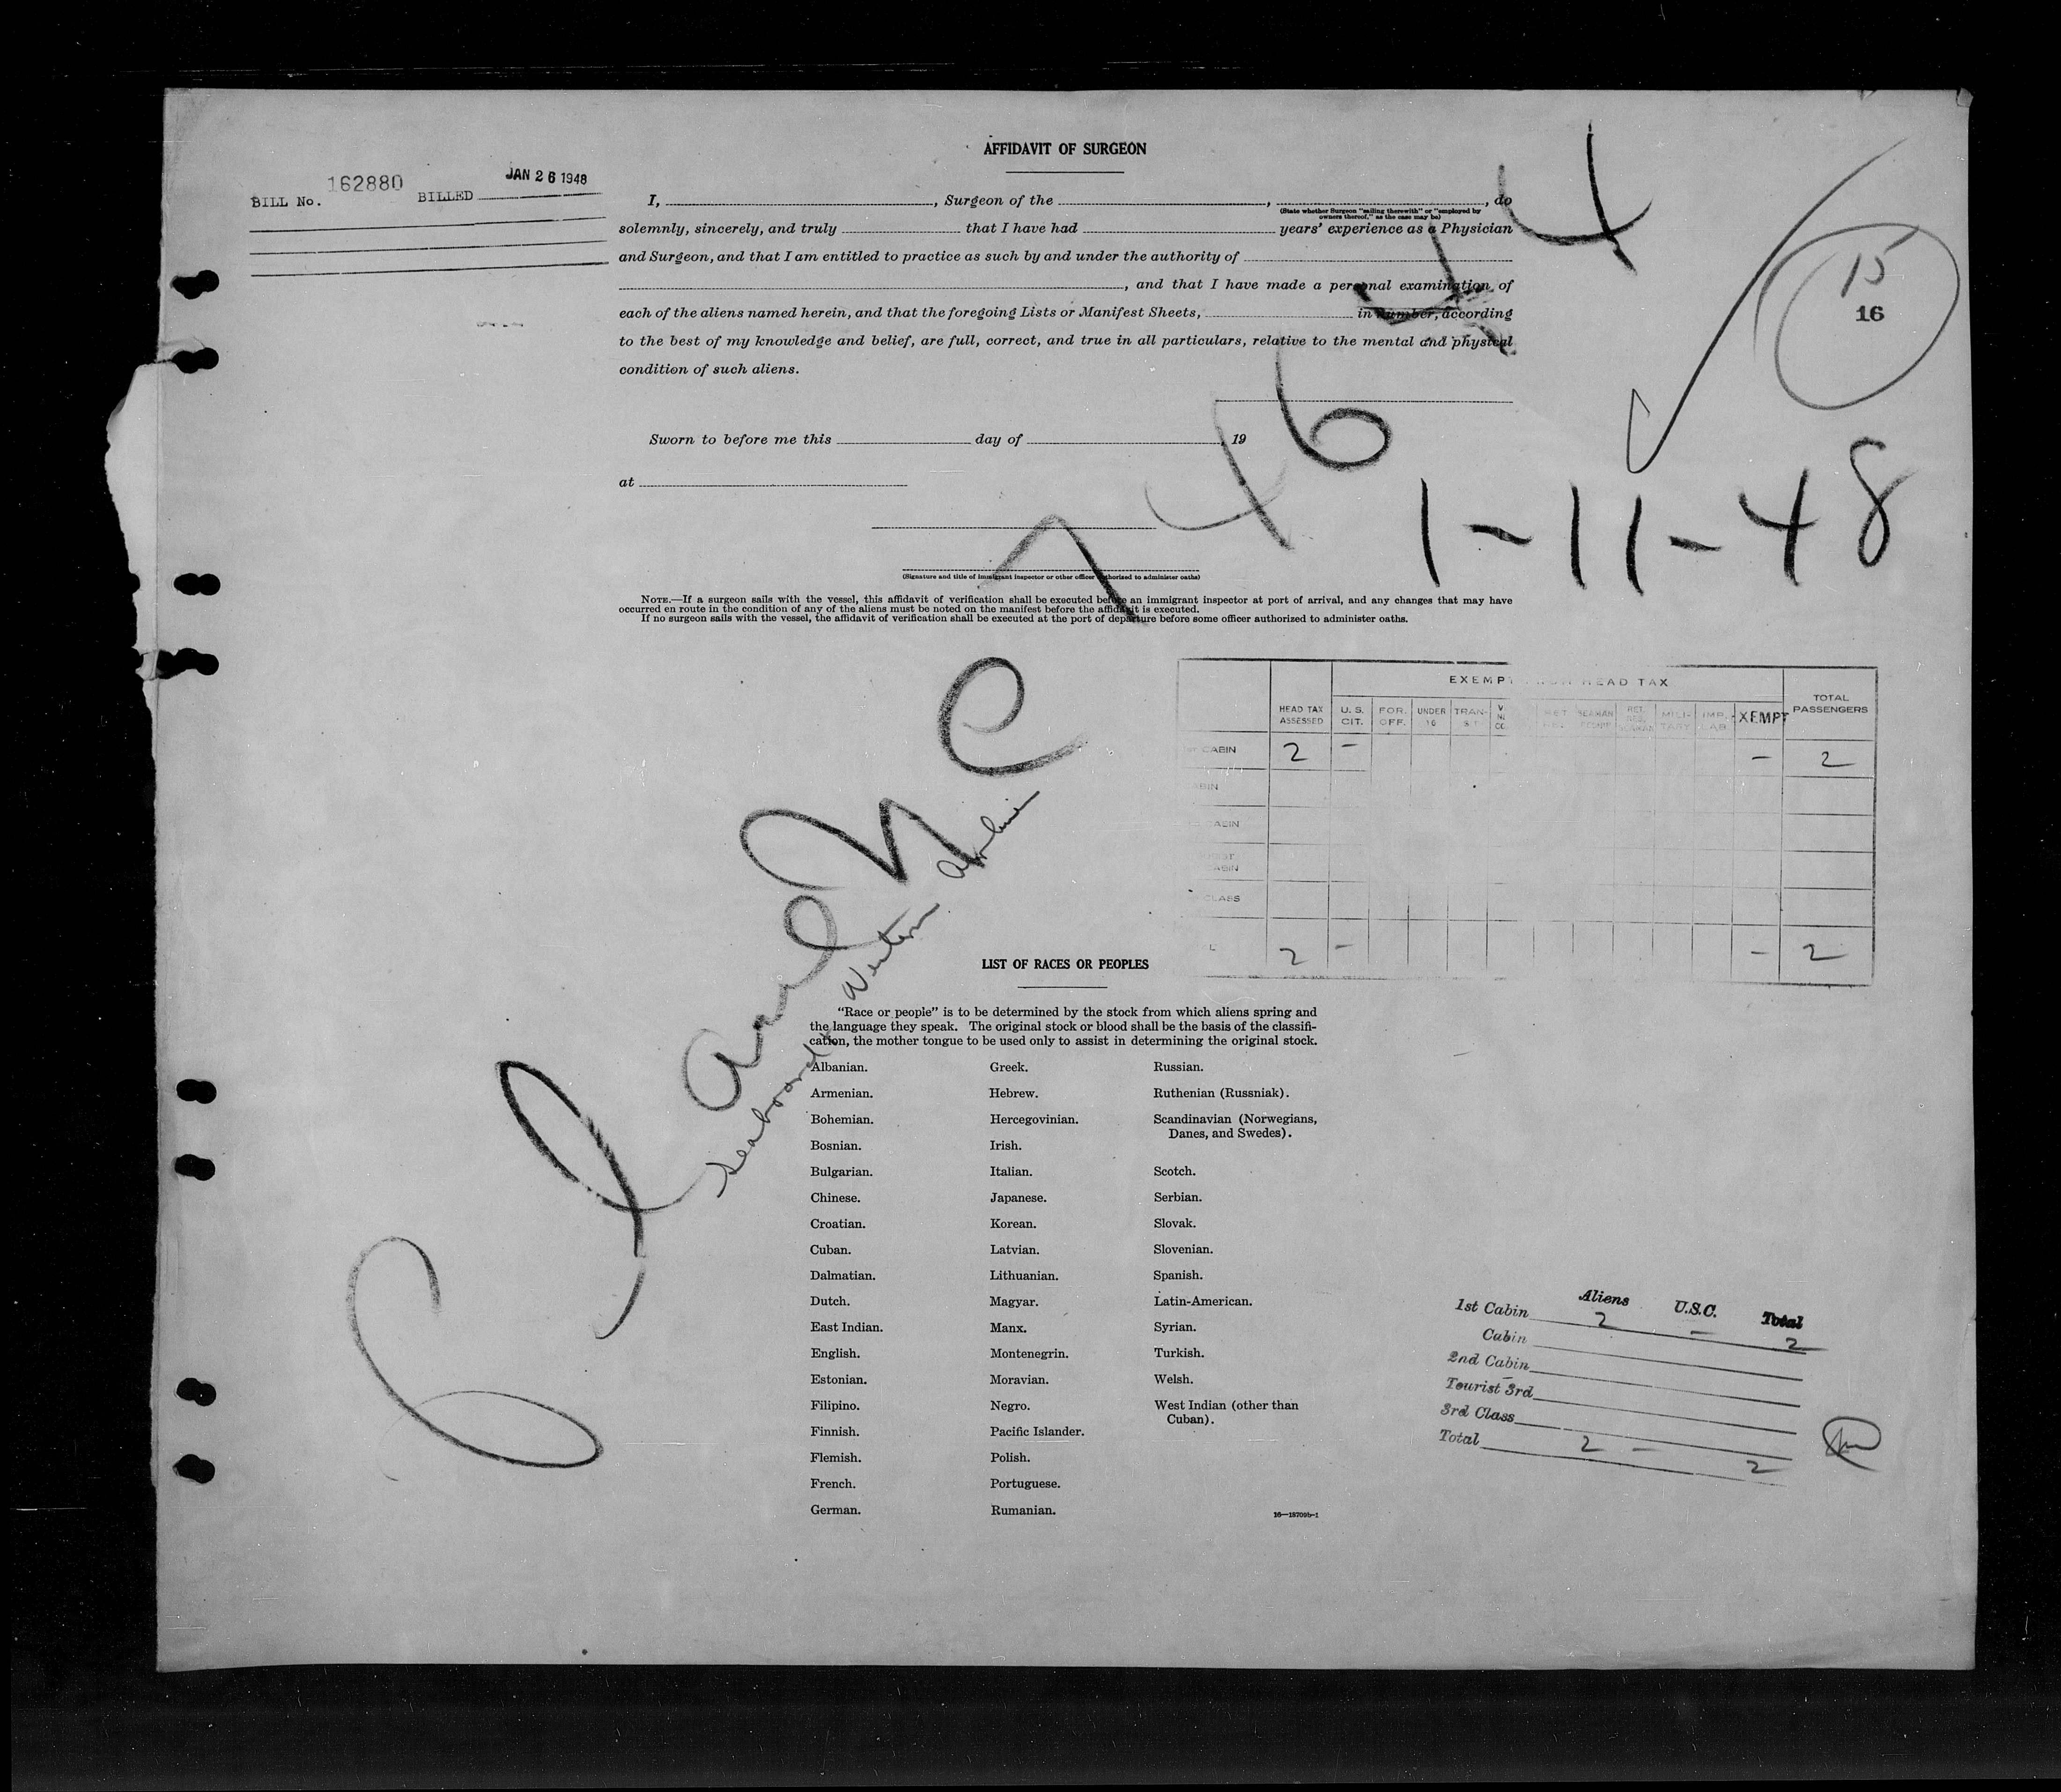 AFFIDAVIT OF SURGEON
BILL No. 162880 BILLED JAN 26 1948
I, , Surgeon of the , , do
(State whether Surgeon "sailing therewith" or "employed by
owners thereof," as the case may be)
solemnly, sincerely, and truly that I have had years' experience as a Physician
and Surgeon, and that I am entitled to practice as such by and under the authority of
, and that I have made a personal examination of
each of the aliens named herein, and that the foregoing Lists or Manifest Sheets, in number, according
to the best of my knowledge and belief, are full, correct, and true in all particulars, relative to the mental and physical
condition of such aliens.
15
16
Sworn to before me this day of , 19
at
1-11-48
(Signature and title of immigrant inspector or other officer authorized to administer oaths)
NOTE.—If a surgeon sails with the vessel, this affidavit of verification shall be executed before an immigrant inspector at port of arrival, and any changes that may have
occurred en route in the condition of any of the aliens must be noted on the manifest before the affidavit is executed.
If no surgeon sails with the vessel, the affidavit of verification shall be executed at the port of departure before some officer authorized to administer oaths.
Seaboard & Western Airline
HEAD TAX ASSESSED
HEAD TAX
U.S. CIT.
FOR. OFF.
UNDER 16
EXEMPT
TOTAL PASSENGERS
CABIN 2 – – 2
CABIN
CLASS
2 – – 2
LIST OF RACES OR PEOPLES
"Race or people" is to be determined by the stock from which aliens spring and
the language they speak. The original stock or blood shall be the basis of the classifi-
cation, the mother tongue to be used only to assist in determining the original stock.
Albanian.
Armenian.
Bohemian.
Bosnian.
Bulgarian.
Chinese.
Croatian.
Cuban.
Dalmatian.
Dutch.
East Indian.
English.
Estonian.
Filipino.
Finnish.
Flemish.
French.
German.
Greek.
Hebrew.
Hercegovinian.
Irish.
Italian.
Japanese.
Korean.
Latvian.
Lithuanian.
Magyar.
Manx.
Montenegrin.
Moravian.
Negro.
Pacific Islander.
Polish.
Portuguese.
Rumanian.
Russian.
Ruthenian (Russniak).
Scandinavian (Norwegians,
Danes, and Swedes).
Scotch.
Serbian.
Slovak.
Slovenian.
Spanish.
Latin-American.
Syrian.
Turkish.
Welsh.
West Indian (other than
Cuban).
16—18709b-1
Aliens U.S.C. Total
1st Cabin 2 – 2
Cabin
2nd Cabin
Tourist 3rd
3rd Class
Total 2 – 2